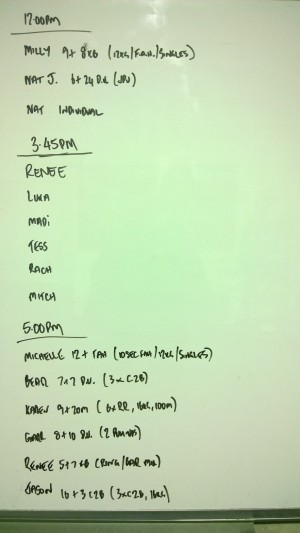 12:00PM
MILLY 9+8KB (12KG/F.G.H./SINGLES)
NAT J. 6+24 D.U. (JPU)
NAT INDIVIDUAL
3.45PM
RENEE
LUKA
MADI
TESS
RACH
MITCH
5:00PM
MICHELLE 12+ (10SEC /12KG/SINGLES)
7+7 P.U. (3xC2B)
KAREN 9+20M (6xRR, 16KG, 100M)
8+10 P.U. (2
RENEE 5+7 KB (RING/BAR MU)
JASON 10+3 C2B (3xC2B, 16KG)